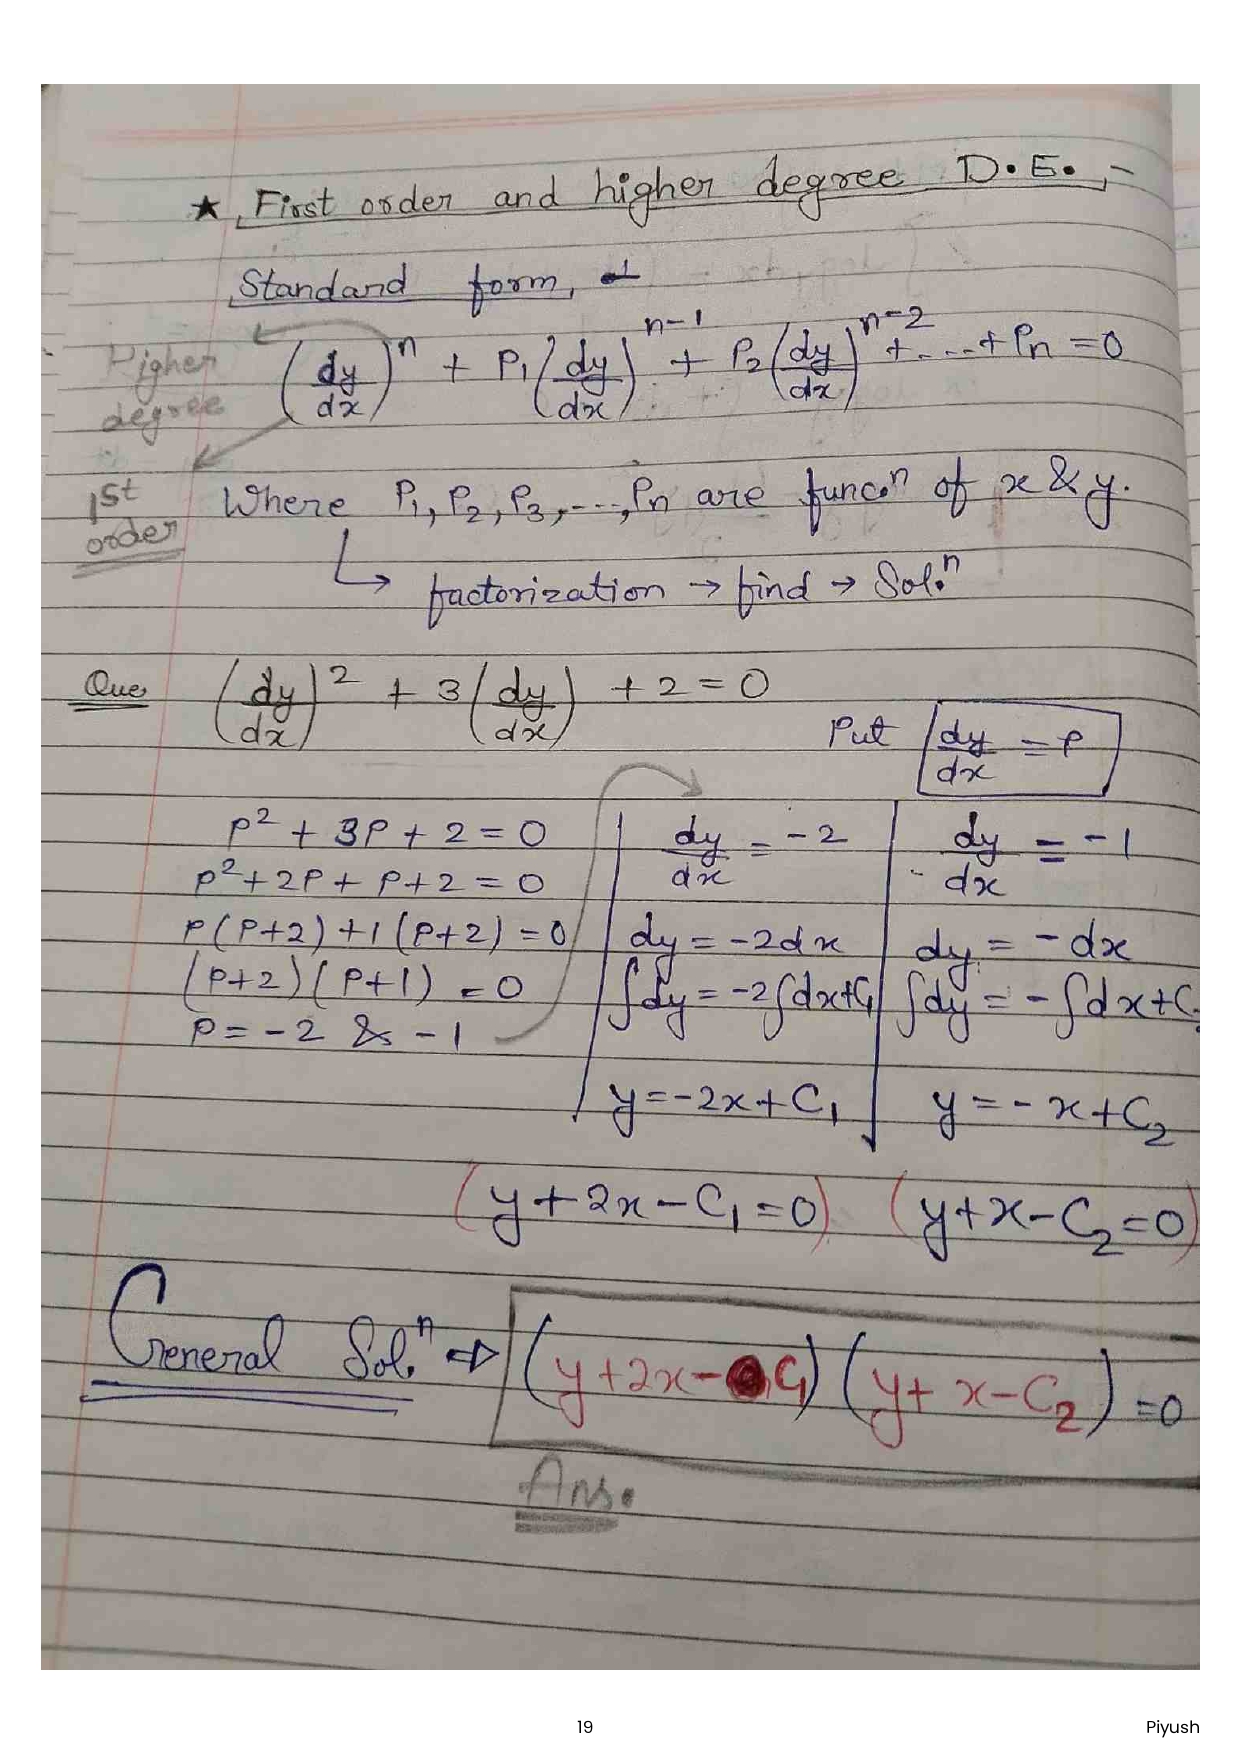 ★ First order and higher degree D.E. :-
Standard form, -
Higher degree
(dy/dx)^n + P₁(dy/dx)^n-1 + P₂(dy/dx)^n-2 + ... + Pn = 0
1st order
Where P₁, P₂, P₃, ..., Pn are func.ⁿ of x & y.
↳ factorization → find → Sol.ⁿ
Que (dy/dx)² + 3(dy/dx) + 2 = 0
Put dy/dx = P
P² + 3P + 2 = 0
P² + 2P + P + 2 = 0
P(P+2) + 1(P+2) = 0
(P+2)(P+1) = 0
P = -2 & -1
dy/dx = -2
dy = -2dx
∫dy = -2∫dx + C₁
y = -2x + C₁
dy/dx = -1
dy = -dx
∫dy = -∫dx + C₂
y = -x + C₂
(y + 2x - C₁ = 0) (y + x - C₂ = 0)
General Sol.ⁿ ⇒ (y + 2x - C₁)(y + x - C₂) = 0
Ans.
19
Piyush